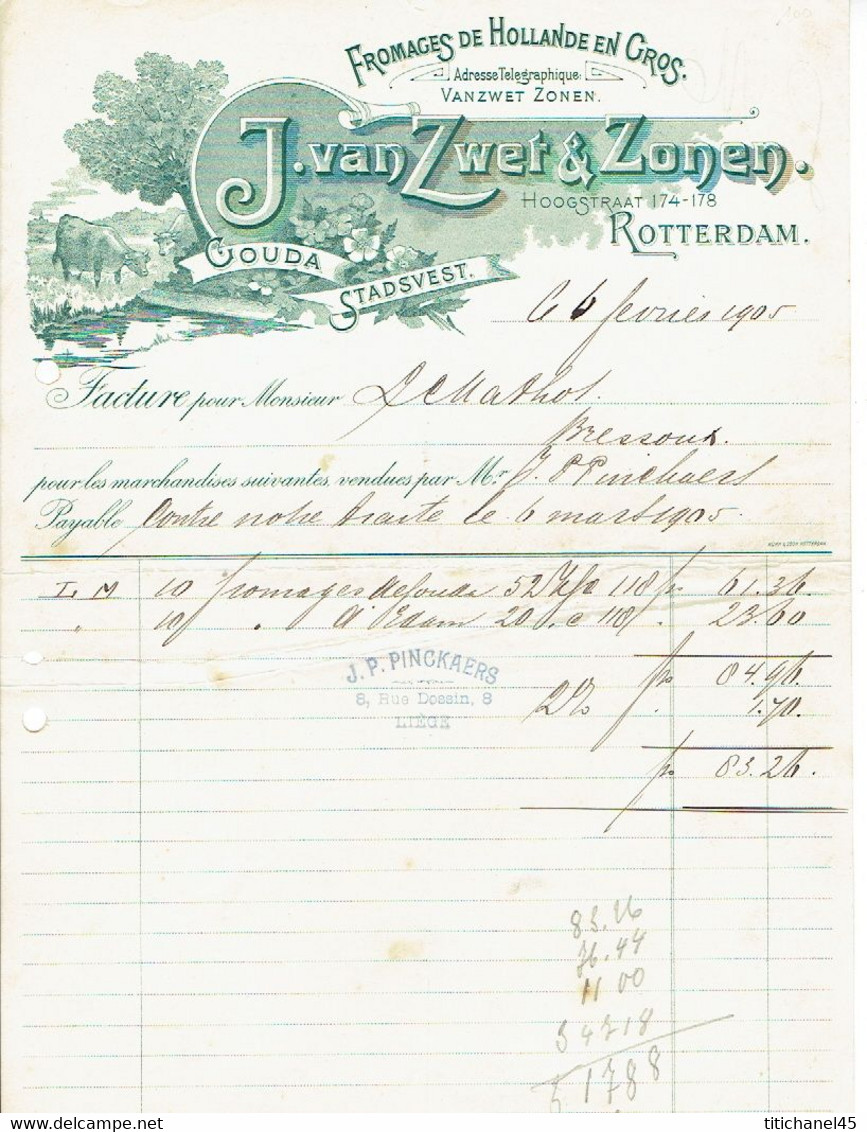 100
FROMAGES DE HOLLANDE EN GROS.
Adresse Telegraphique:
VANZWET ZONEN.
J. van Zwet & Zonen.
HOOGSTRAAT 174-178
ROTTERDAM.
GOUDA
STADSVEST.
6 fevrier 1905
Facture pour Monsieur L Mathot
Bressoux.
pour les marchandises suivantes, vendues par Mr. J. P Pinckaers
Payable Contre notre traite le 6 mars 1905.
L M 10 fromages de Gouda 52 K à 118 frs 61.36.
" 10 " d'Edam 20 " à 118 " 23.60
J. P. PINCKAERS
8, Rue Dossin, 8
LIÉGE
frs 84.96.
2% " 1.70.
frs 83.26.
83.26
76.44
11 00
1788
titichanel45